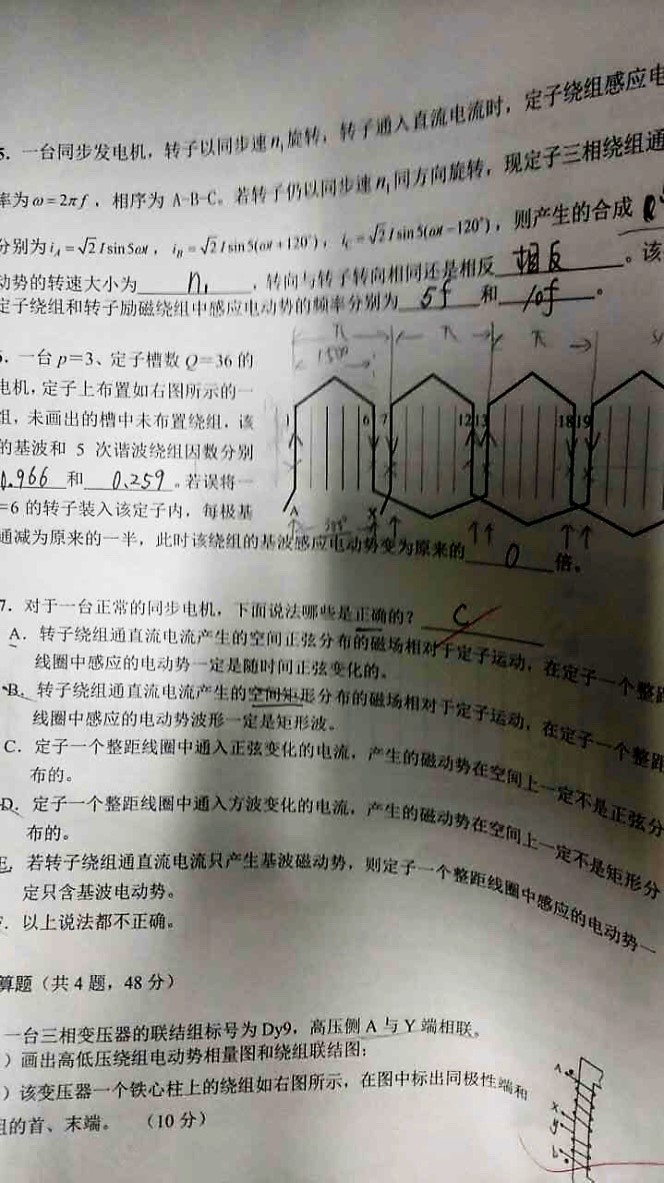 5. 一台同步发电机，转子以同步速 n₁ 旋转，转子通入直流电流时，定子绕组感应电
率为 ω=2πf，相序为 A-B-C。若转子仍以同步速 n₁ 同方向旋转，现定子三相绕组通
分别为 i_A=√2 I sin5ωt，i_B=√2 I sin5(ωt+120°)，i_C=√2 I sin5(ωt-120°)，则产生的合成
动势的转速大小为 n₁ ，转向与转子转向相同还是相反 相反 。该
定子绕组和转子励磁绕组中感应电动势的频率分别为 5f 和 10f 。
6. 一台 p=3、定子槽数 Q=36 的
电机，定子上布置如右图所示的一
组，未画出的槽中未布置绕组，该
的基波和 5 次谐波绕组因数分别
0.966 和 0.259 。若误将一
=6 的转子装入该定子内，每极基
通减为原来的一半，此时该绕组的基波感应电动势变为原来的 0 倍。
π π π
150°
1 6 7 12 13 18 19
A X
7. 对于一台正常的同步电机，下面说法哪些是正确的？ C
A. 转子绕组通直流电流产生的空间正弦分布的磁场相对于定子运动，在定子一个整距
线圈中感应的电动势一定是随时间正弦变化的。
B. 转子绕组通直流电流产生的空间矩形分布的磁场相对于定子运动，在定子一个整距
线圈中感应的电动势波形一定是矩形波。
C. 定子一个整距线圈中通入正弦变化的电流，产生的磁动势在空间上一定不是正弦分
布的。
D. 定子一个整距线圈中通入方波变化的电流，产生的磁动势在空间上一定不是矩形分
布的。
E. 若转子绕组通直流电流只产生基波磁动势，则定子一个整距线圈中感应的电动势一
定只含基波电动势。
F. 以上说法都不正确。
算题（共 4 题，48 分）
一台三相变压器的联结组标号为 Dy9，高压侧 A 与 Y 端相联。
）画出高低压绕组电动势相量图和绕组联结图；
）该变压器一个铁心柱上的绕组如右图所示，在图中标出同极性端和
组的首、末端。 （10 分）
A
X
y
b